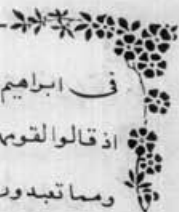 في ابراهيم
اذ قالوا لقومه
ومما تعبدون